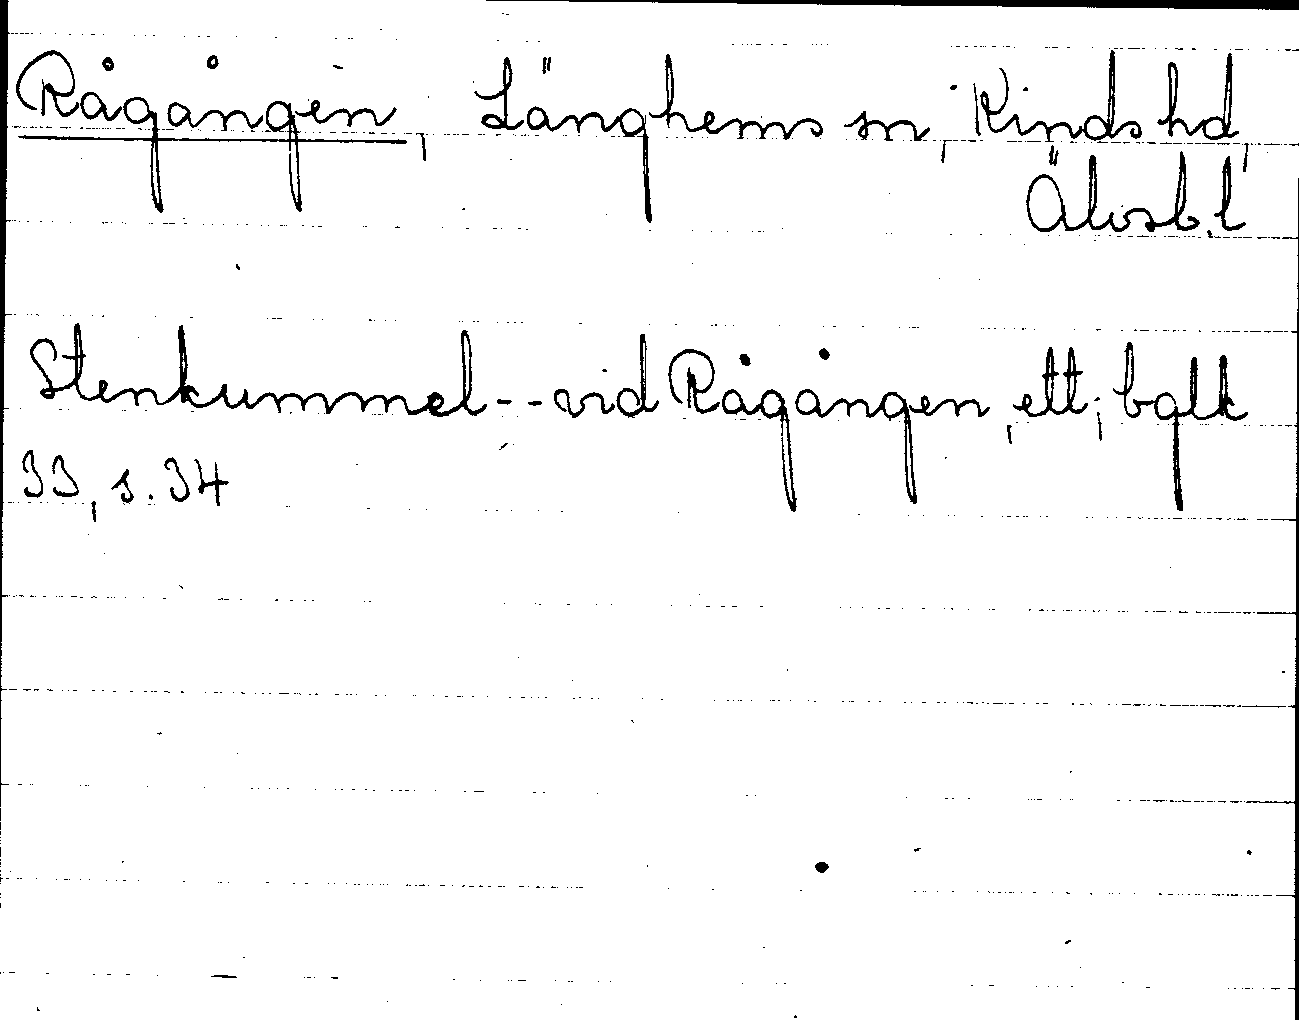 Rågången, Länghems sn, Kinds hd,
Älvsb. l
Stenkummel -- vid Rågången, ett; bglk
33, s. 34